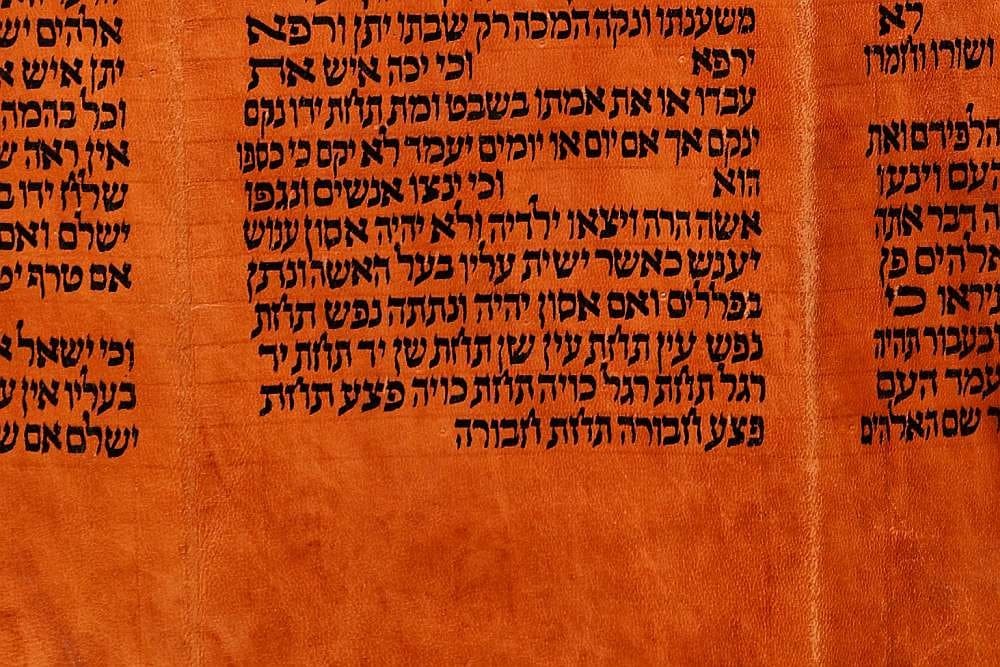 לא
ושורו וחמרו
הלפידם ואת
העם וינעו
דבר אתה
אלהים פן
כי
בעבור תהיה
עמד העם
שם האלהים
משענתו ונקה המכה רק שבתו יתן ורפא
ירפא וכי יכה איש את
עבדו או את אמתו בשבט ומת תחת ידו נקם
ינקם אך אם יום או יומים יעמד לא יקם כי כספו
הוא וכי ינצו אנשים ונגפו
אשה הרה ויצאו ילדיה ולא יהיה אסון ענוש
יענש כאשר ישית עליו בעל האשה ונתן
בפללים ואם אסון יהיה ונתתה נפש תחת
נפש עין תחת עין שן תחת שן יד תחת יד
רגל תחת רגל כויה תחת כויה פצע תחת
פצע חבורה תחת חבורה
אלהים יש
יתן איש
וכל בהמה
אין ראה ש
שלח ידו ב
ישלם ואם
אם טרף יט
וכי ישאל
בעליו אין ע
ישלם אם ש